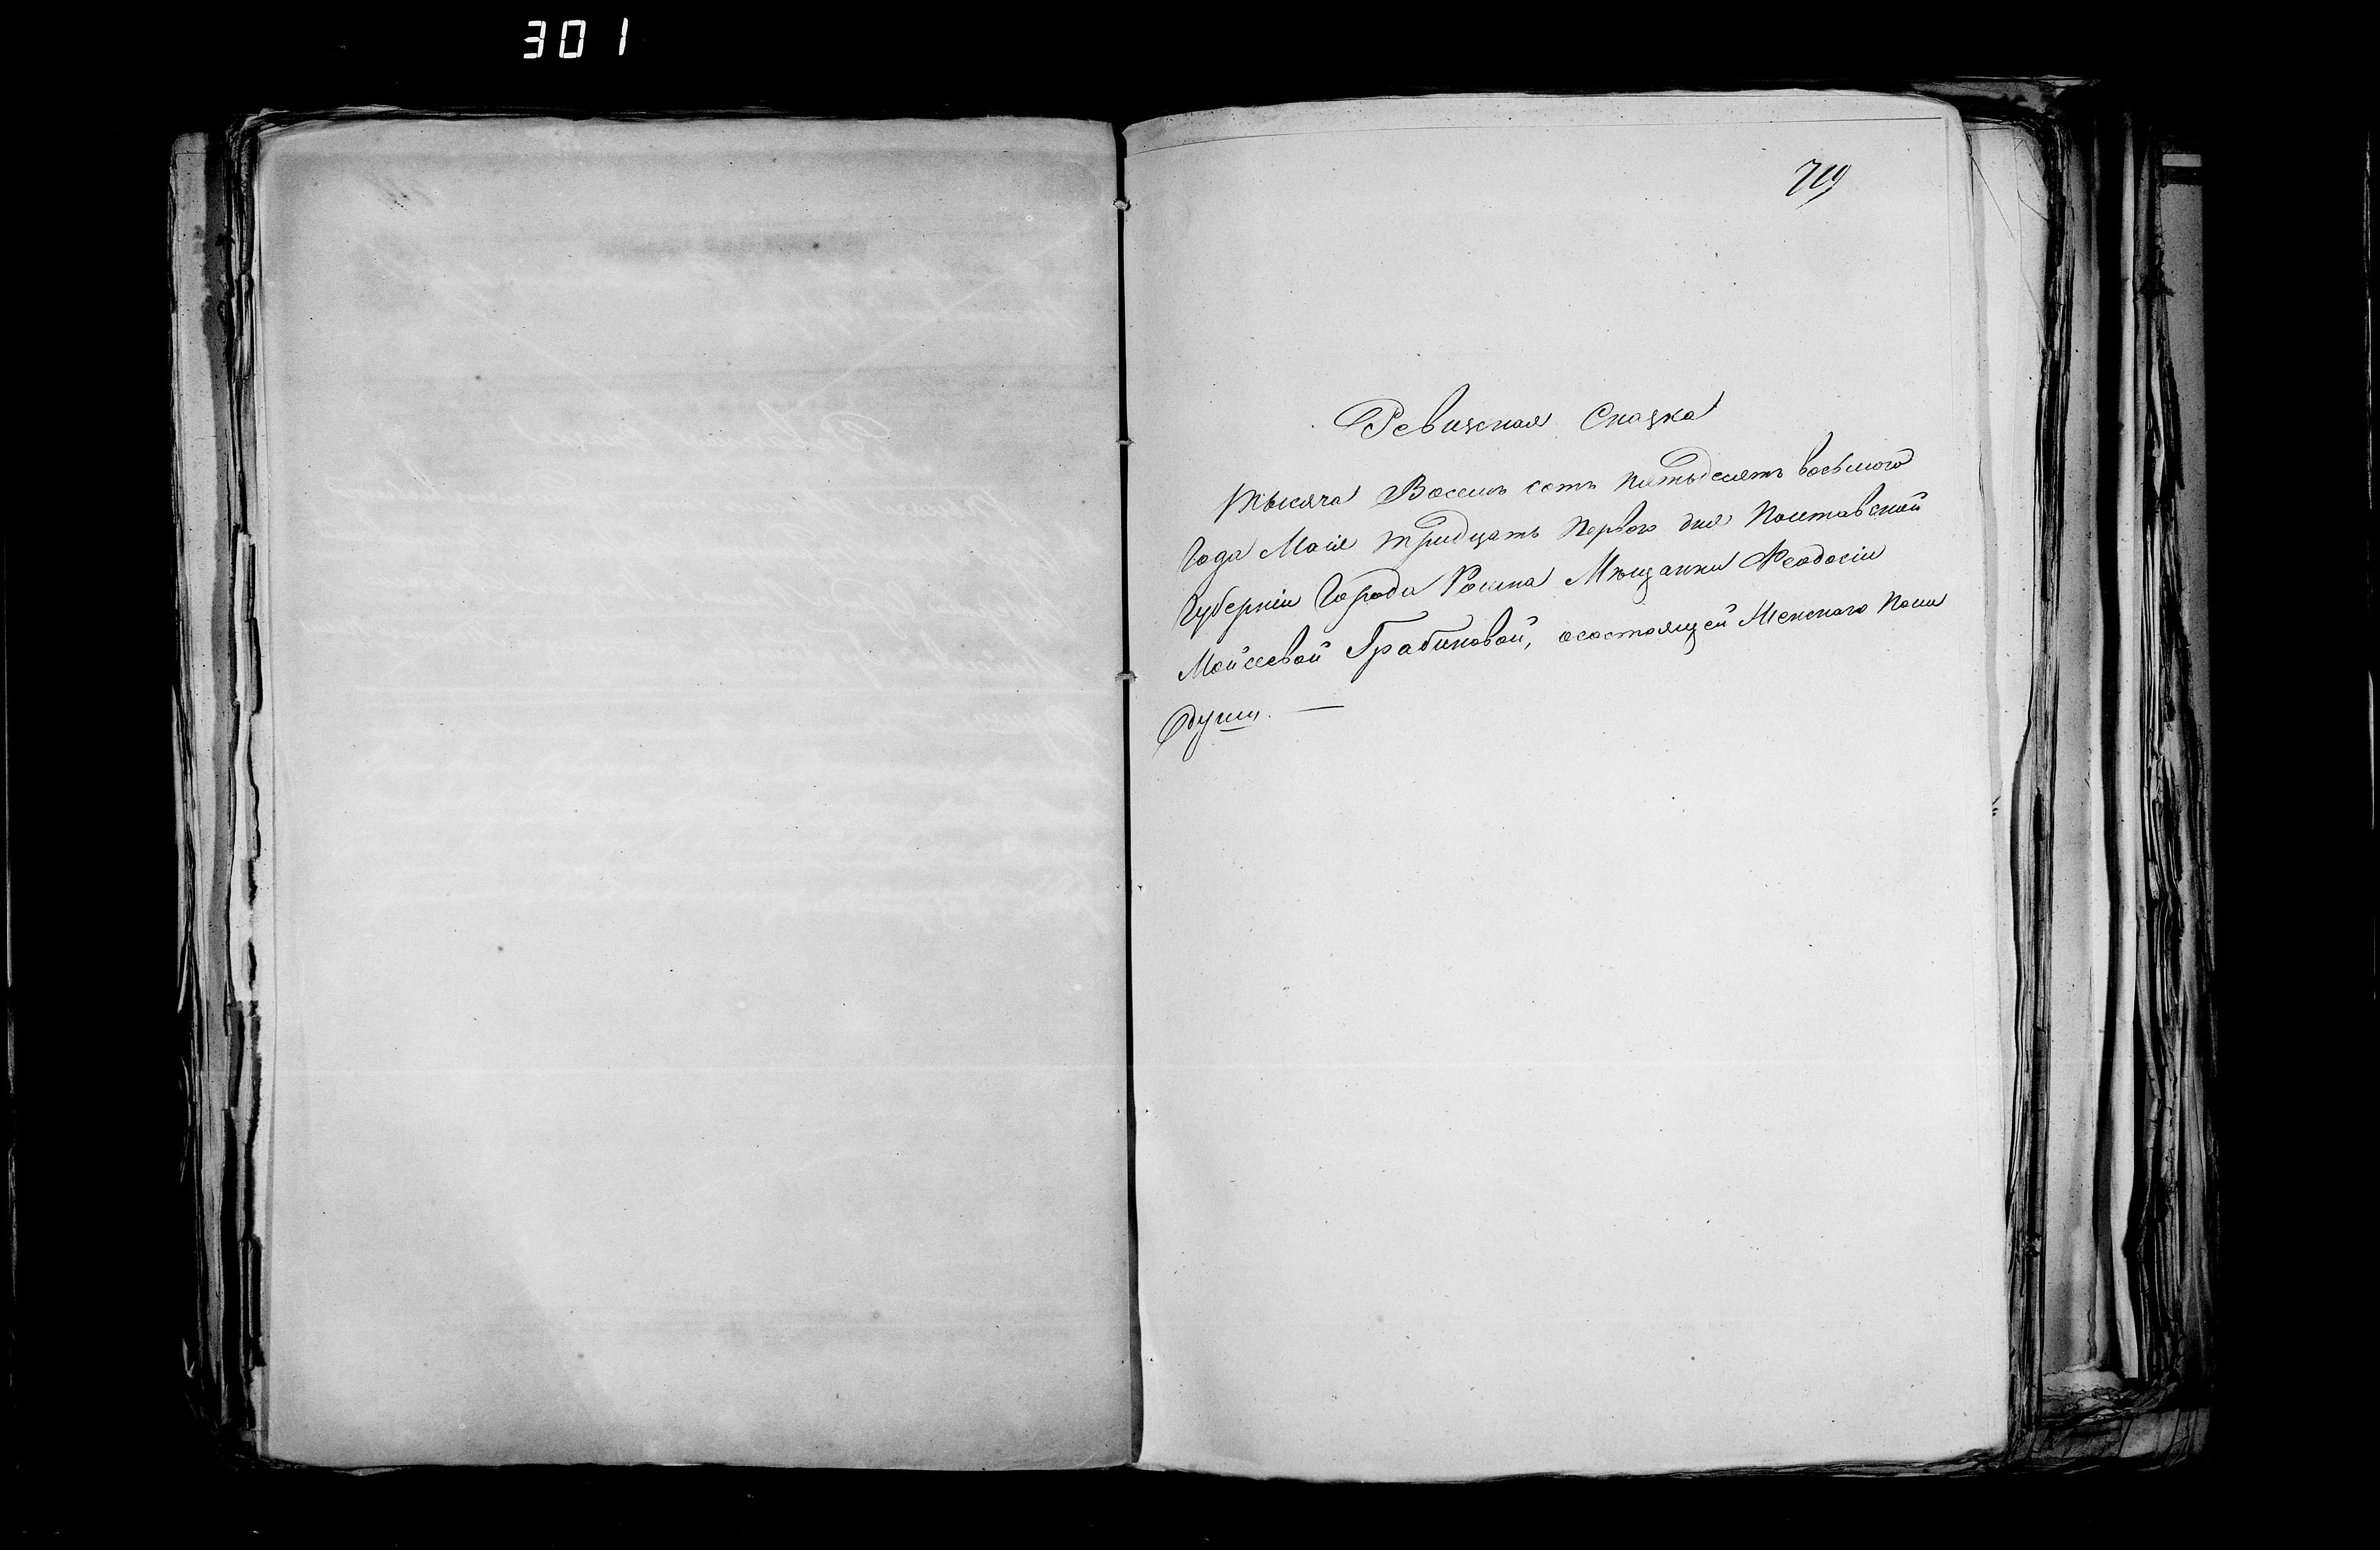 301
719
Ревизская Сказка
Тысяча Восемь сотъ пятьдесятъ восьмого
Года Маія тридцать Первого дня Полтавской
Губерніи Города Ромна Мѣщанки Феодосіи
Мойсеевой Грабиковой, осостоящей Женского пола
души. —